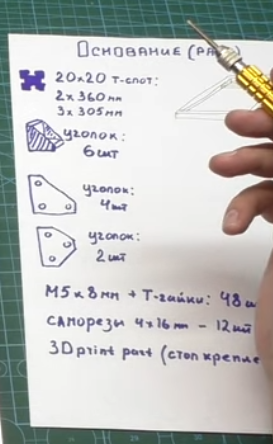 Основание (РА
20x20 т-спот:
2x360мм
3x305мм
уголок:
6шт
уголок:
4шт
уголок:
2шт
М5x8мм + Т-гайки: 48 ш
саморезы 4x16мм - 12шт
3Dprint part (стол крепле